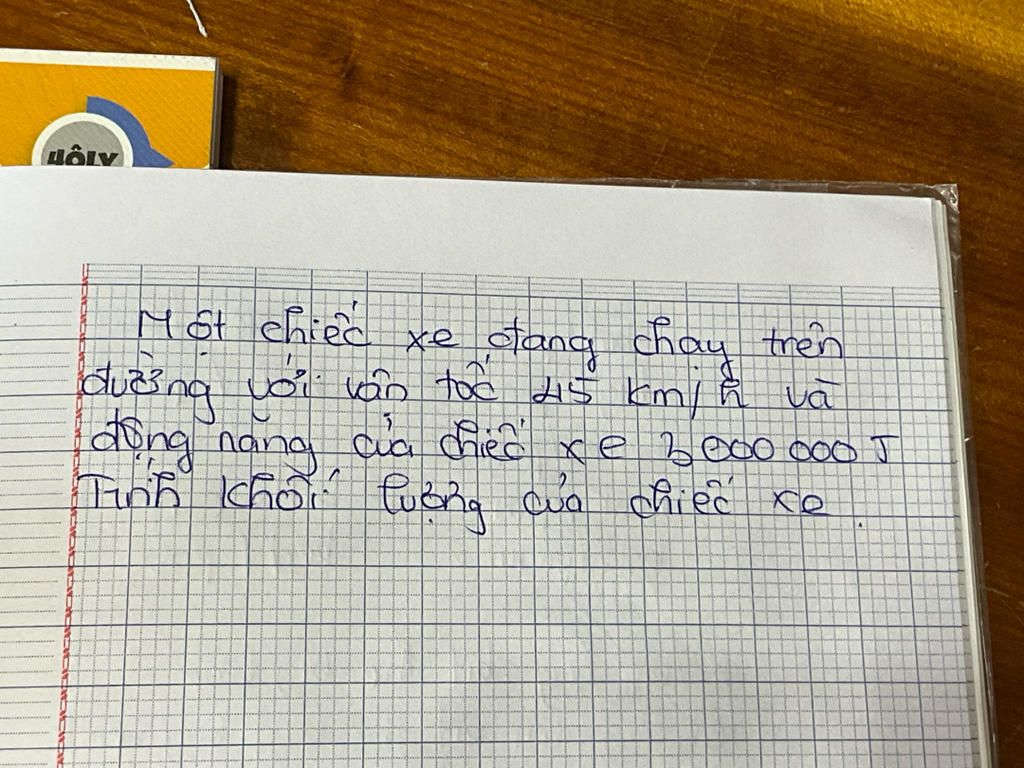 4ÔLY
Một chiếc xe đang chạy trên
đường với vận tốc 45 km/h và
động năng của chiếc xe 3000 000 J
Tính khối lượng của chiếc xe.